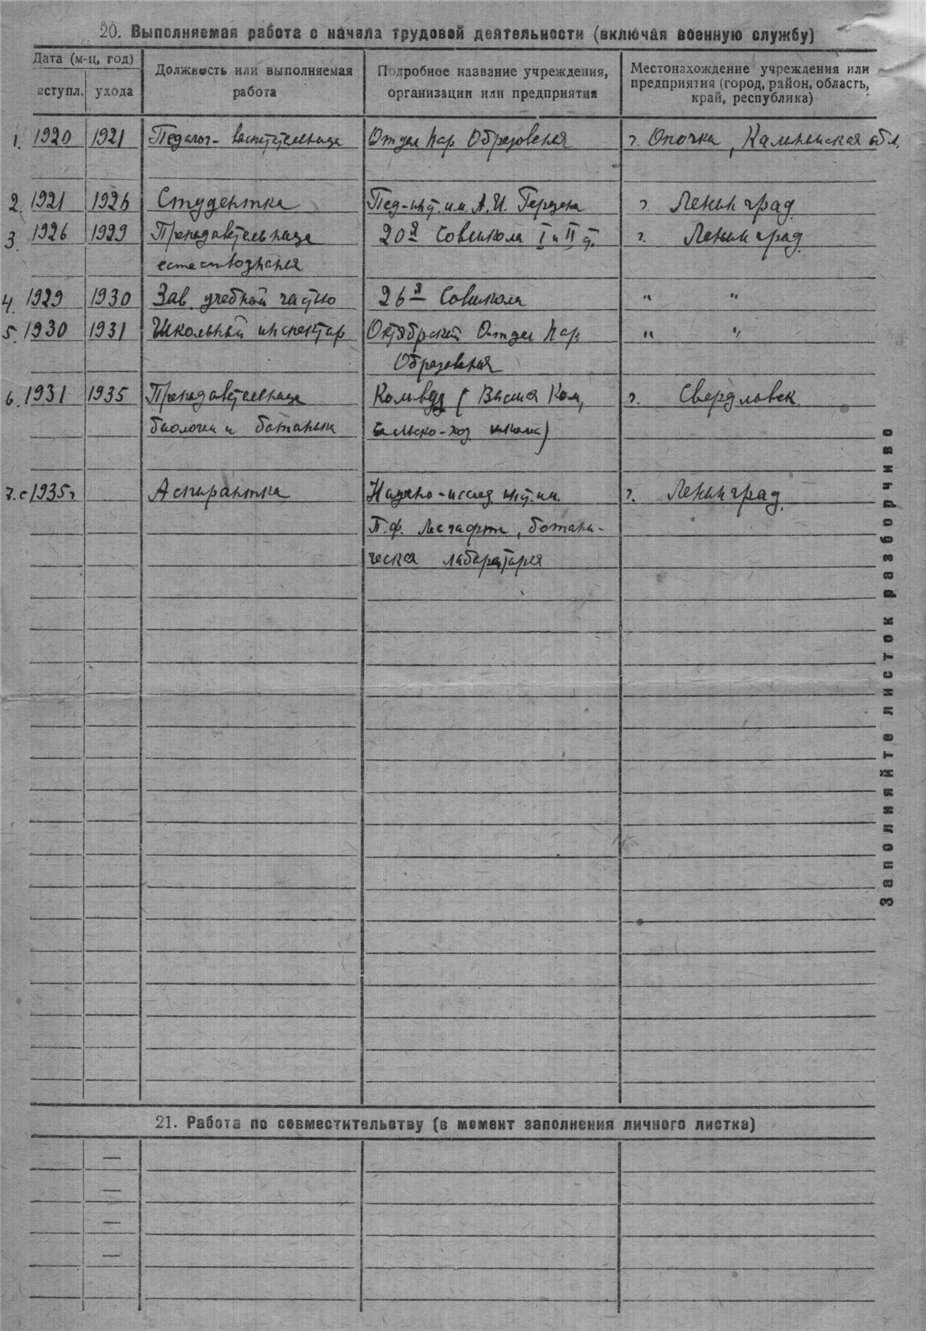 20. Выполняемая работа с начала трудовой деятельности (включая военную службу)
Дата (м-ц, год)
вступл. ухода
Должность или выполняемая
работа
Подробное название учреждения,
организации или предприятия
Местонахождение учреждения или
предприятия (город, район, область,
край, республика)
1. 1920 1921 Педагог-воспитательница Отдел Нар Образования г. Опочка, Калининская обл.
2. 1921 1926 Студентка Пед-инт. им. А.И. Герцена г. Ленинград.
3. 1926 1929 Преподавательница 20я Совшкола I и II г. Ленинград.
естествознания
4. 1929 1930 Зав. учебной частью 26я Совшкола " "
5. 1930 1931 Школьный инспектор Октябрский Отдел Нар " "
Образования
6. 1931 1935 Преподавательница Комвуз (Высшая Ком, г. Свердловск
биологии и ботаники сельско-хоз школа)
7. с 1935г Аспирантка Научно-исслед инт. им. г. Ленинград.
П.Ф. Лесгафта, ботани-
ческая лаборатория
Заполняйте листок разборчиво
21. Работа по совместительству (в момент заполнения личного листка)
—
—
—
—